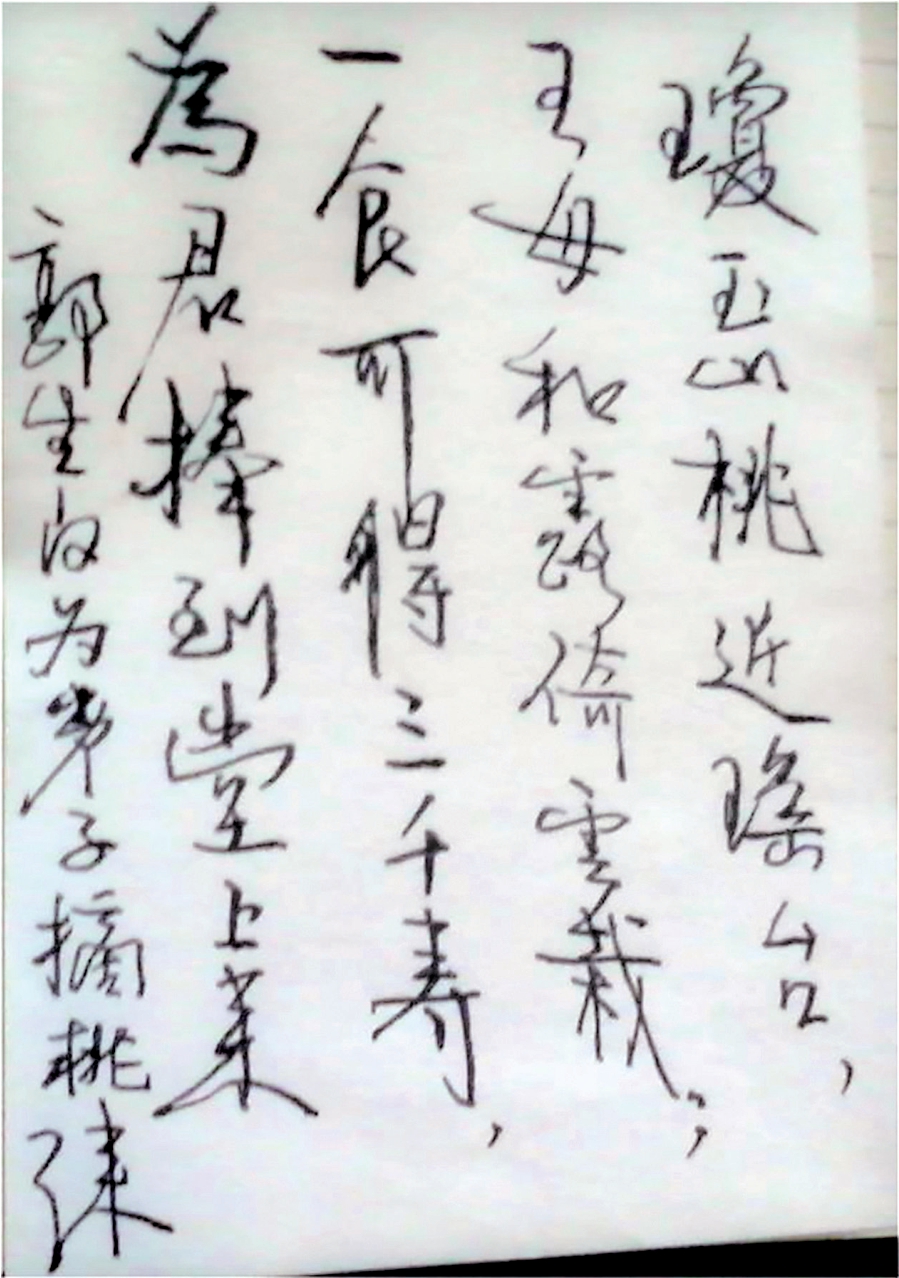 瓊玉山桃近瑶台，
王母和露倚雲栽；
一食可得三千寿，
為君捧到堂上来
郭生为弟子摘桃